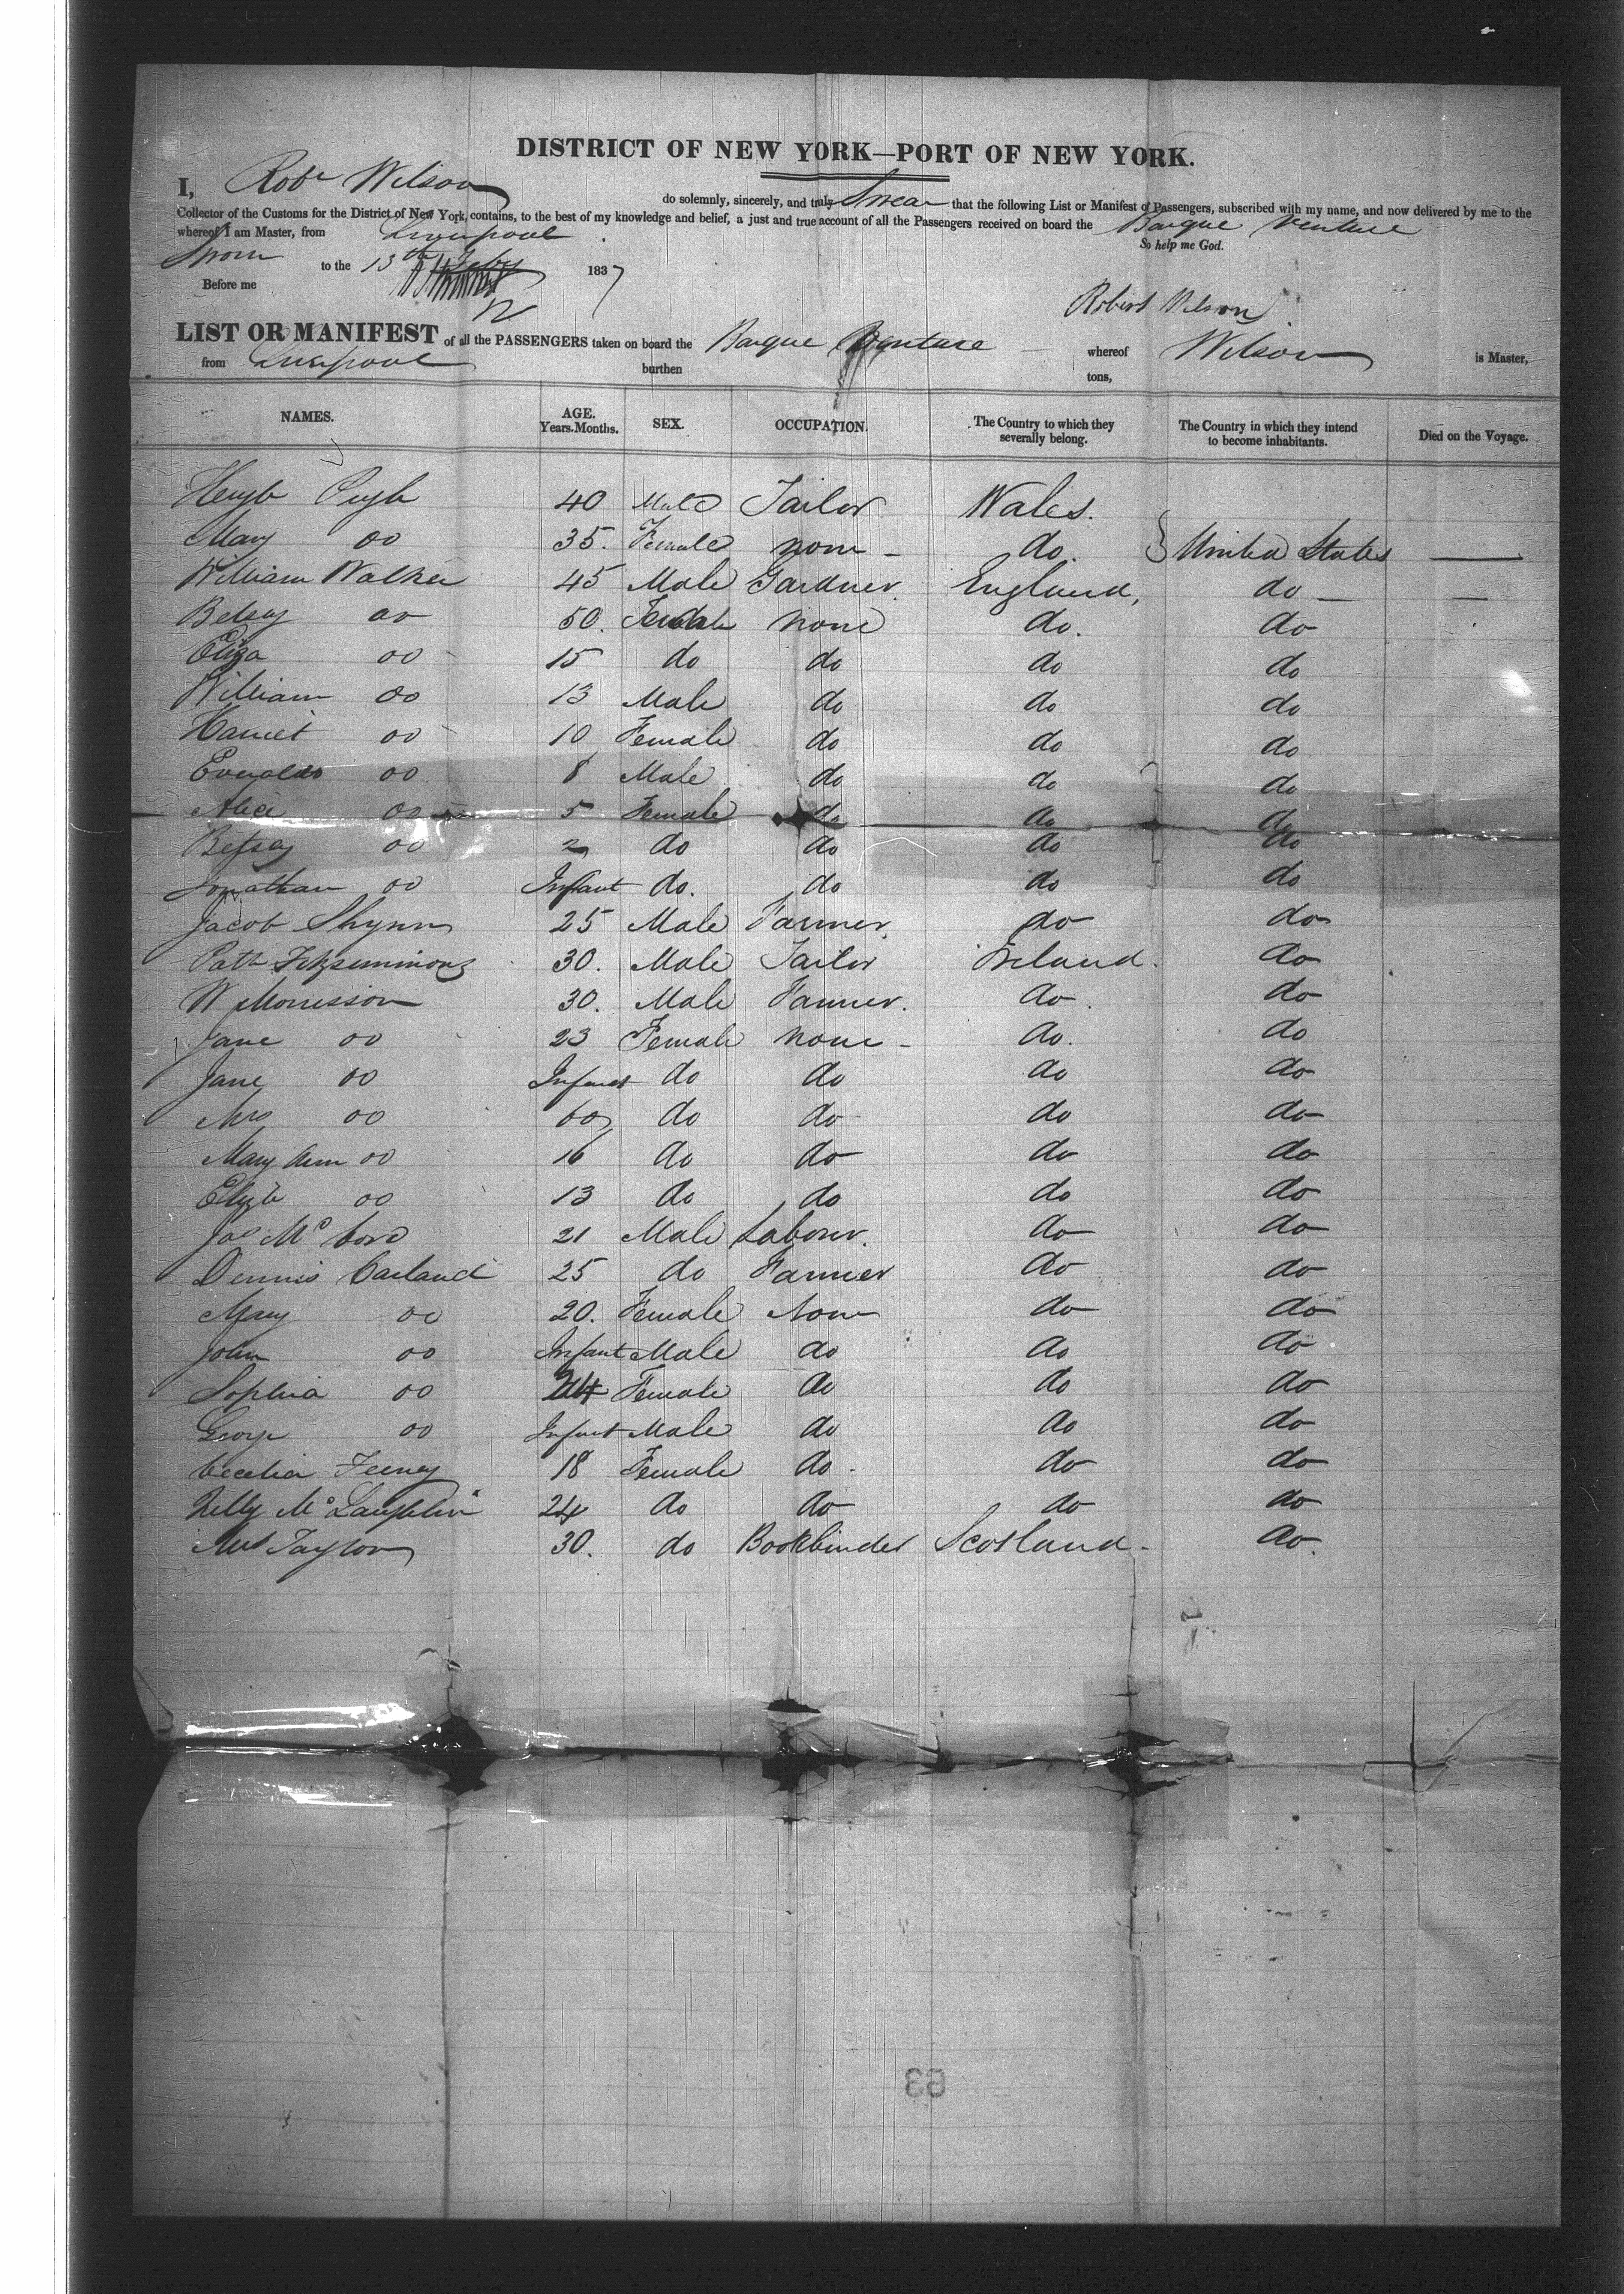 DISTRICT OF NEW YORK—PORT OF NEW YORK.
I, Robt Wilson do solemnly, sincerely, and truly Swear that the following List or Manifest of Passengers, subscribed with my name, and now delivered by me to the
Collector of the Customs for the District of New York, contains, to the best of my knowledge and belief, a just and true account of all the Passengers received on board the Barque Venture
whereof I am Master, from Liverpool So help me God.
Sworn to the 13th Feby 1837
Before me
Robert Wilson
LIST OR MANIFEST of all the PASSENGERS taken on board the Barque Venture whereof Wilson is Master,
from Liverpool burthen tons,
NAMES. AGE. Years. Months. SEX. OCCUPATION. The Country to which they severally belong. The Country in which they intend to become inhabitants. Died on the Voyage.
Hugh Pugh 40 Male Tailor Wales.
Mary do 35. Female none do. United States
William Walker 45 Male Gardner. England, do
Betsy do 50. Female none do. do
Eliza do 15 do do do do
William do 13 Male do do do
Harriet do 10 Female do do do
do 8 Male do do do
Alice do 5 Female do do do
Betsey do 2 do do do do
Jonathan do Infant do. do do do
Jacob 25 Male Farmer. do do
Patk Fitzsimmons 30. Male Tailor Ireland. do
W Morrisson 30. Male Farmer. do. do
Jane do 23 Female none do. do
Jane do Infant do do do do
Mrs do 60 do do do do
Mary Ann do 16 do do do do
Elizth do 13 do do do do
Jas McCord 21 Male Laborer. do do
Dennis Carland 25 do Farmer do do
Mary do 20. Female None do do
John do Infant Male do do do
Sophia do 24 Female do do do
George do Infant Male do do do
Cecelia Feeney 18 Female do do do
Nelly McLaughlin 24 do do do do
Taylor 30. do Bookbinder Scotland. do.
63